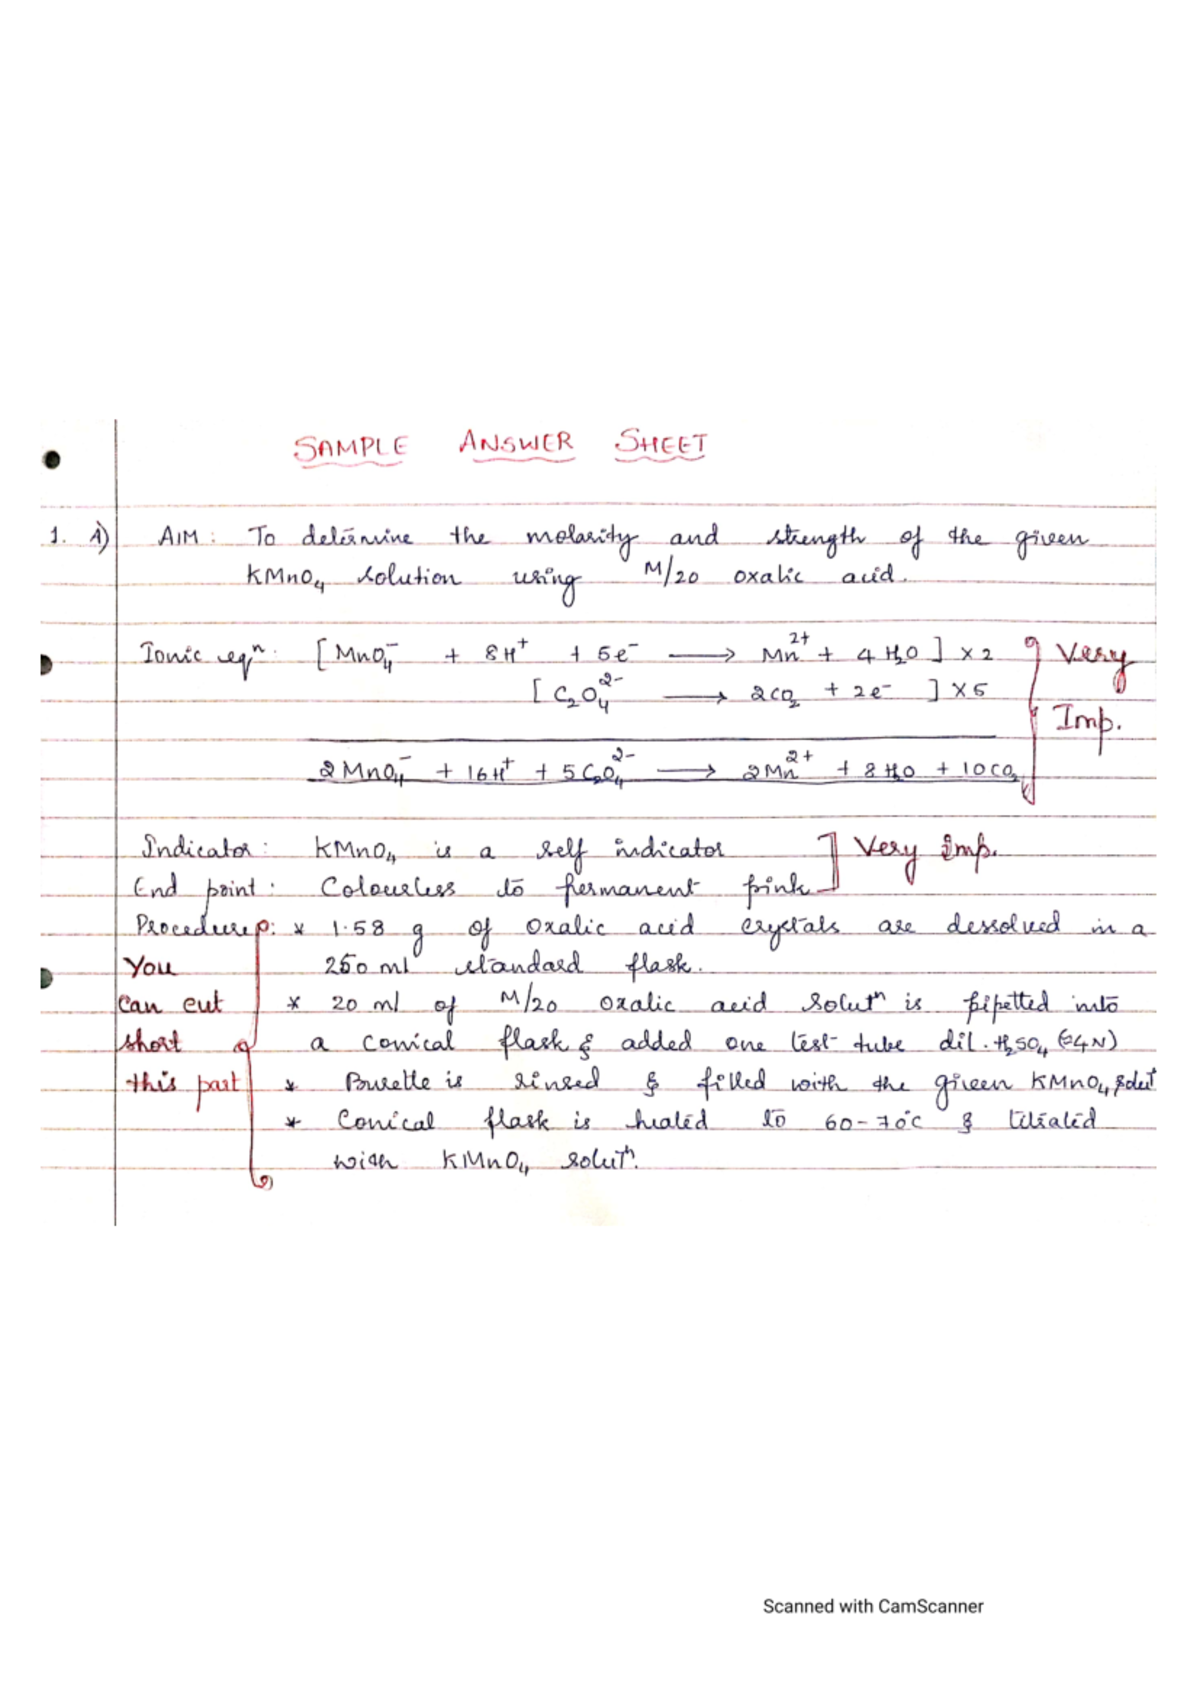 SAMPLE ANSWER SHEET
1. A) AIM: To determine the molarity and strength of the given
KMnO₄ solution using M/20 oxalic acid.
Ionic eqⁿ: [MnO₄⁻ + 8H⁺ + 5e⁻ ⟶ Mn²⁺ + 4H₂O] ×2
[C₂O₄²⁻ ⟶ 2CO₂ + 2e⁻] ×5
Very
Imp.
2MnO₄⁻ + 16H⁺ + 5C₂O₄²⁻ ⟶ 2Mn²⁺ + 8H₂O + 10CO₂
Indicator: KMnO₄ is a self indicator
End point: Colourless to permanent pink
Very Imp.
Procedure: * 1.58 g of oxalic acid crystals are dessolved in a
250 ml standard flask.
* 20 ml of M/20 oxalic acid Solutⁿ is pipetted into
a conical flask & added one test tube dil. H₂SO₄ (≈4N)
* Burette is rinsed & filled with the given KMnO₄ solutⁿ
* Conical flask is heated to 60-70°C & titrated
with KMnO₄ solutⁿ.
You
can cut
short
this part
Scanned with CamScanner